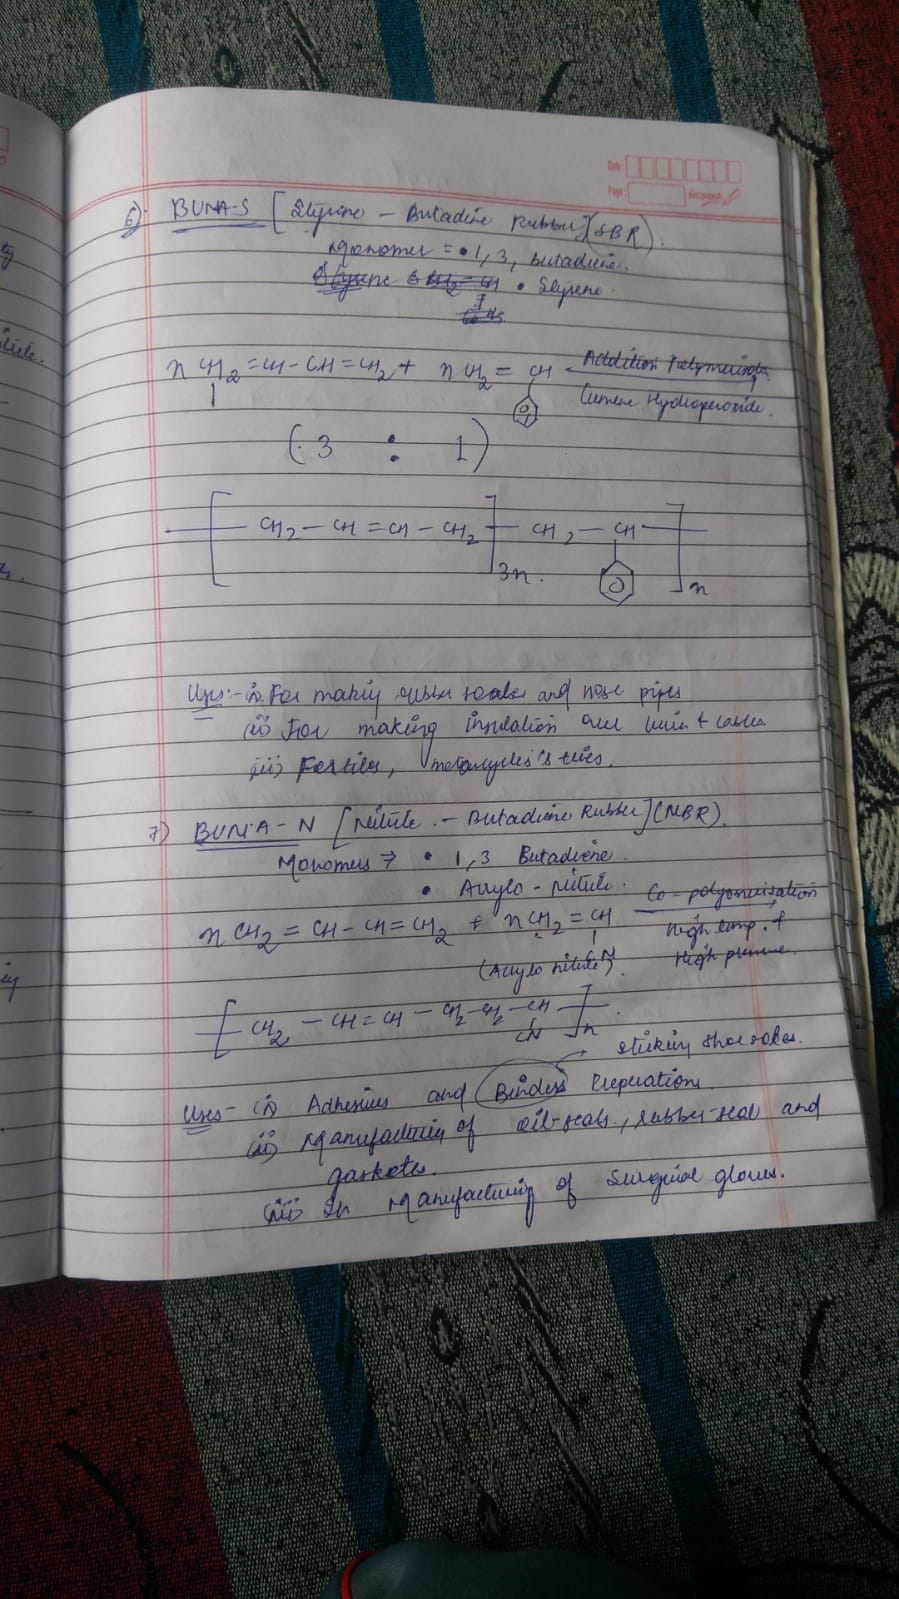 Date:
Page:
6) BUNA-S [Styrene - Butadiene Rubber] (SBR):
Monomer = • 1,3, butadiene.
• Styrene.
n CH2 = CH - CH = CH2 + n CH2 = CH Addition Polymerization
Cumene Hydroperoxide.
(3 : 1)
[ CH2 - CH = CH - CH2 ]3n CH2 - CH ]n
Uses:- (i) For making rubber soales and hose pipes
(ii) For making insulation over wire + cables
(iii) For tires, motorcycles's tires.
7) BUNA - N [Nitrile - Butadiene Rubber] (NBR).
Monomers → • 1,3 Butadiene.
• Acrylo - Nitrile.
n CH2 = CH - CH = CH2 + n CH2 = CH Co - polymerisation
CN High temp. +
(Acrylo nitrile). High pressure.
[ CH2 - CH = CH - CH2 - CH2 - CH ]n
CN
sticking shoe soles.
Uses - (i) Adhesives and Binders Preperation
(ii) Manufacturing of oil-seals, rubber-seal and
gaskets.
(iii) In Manufacturing of Surgical gloves.